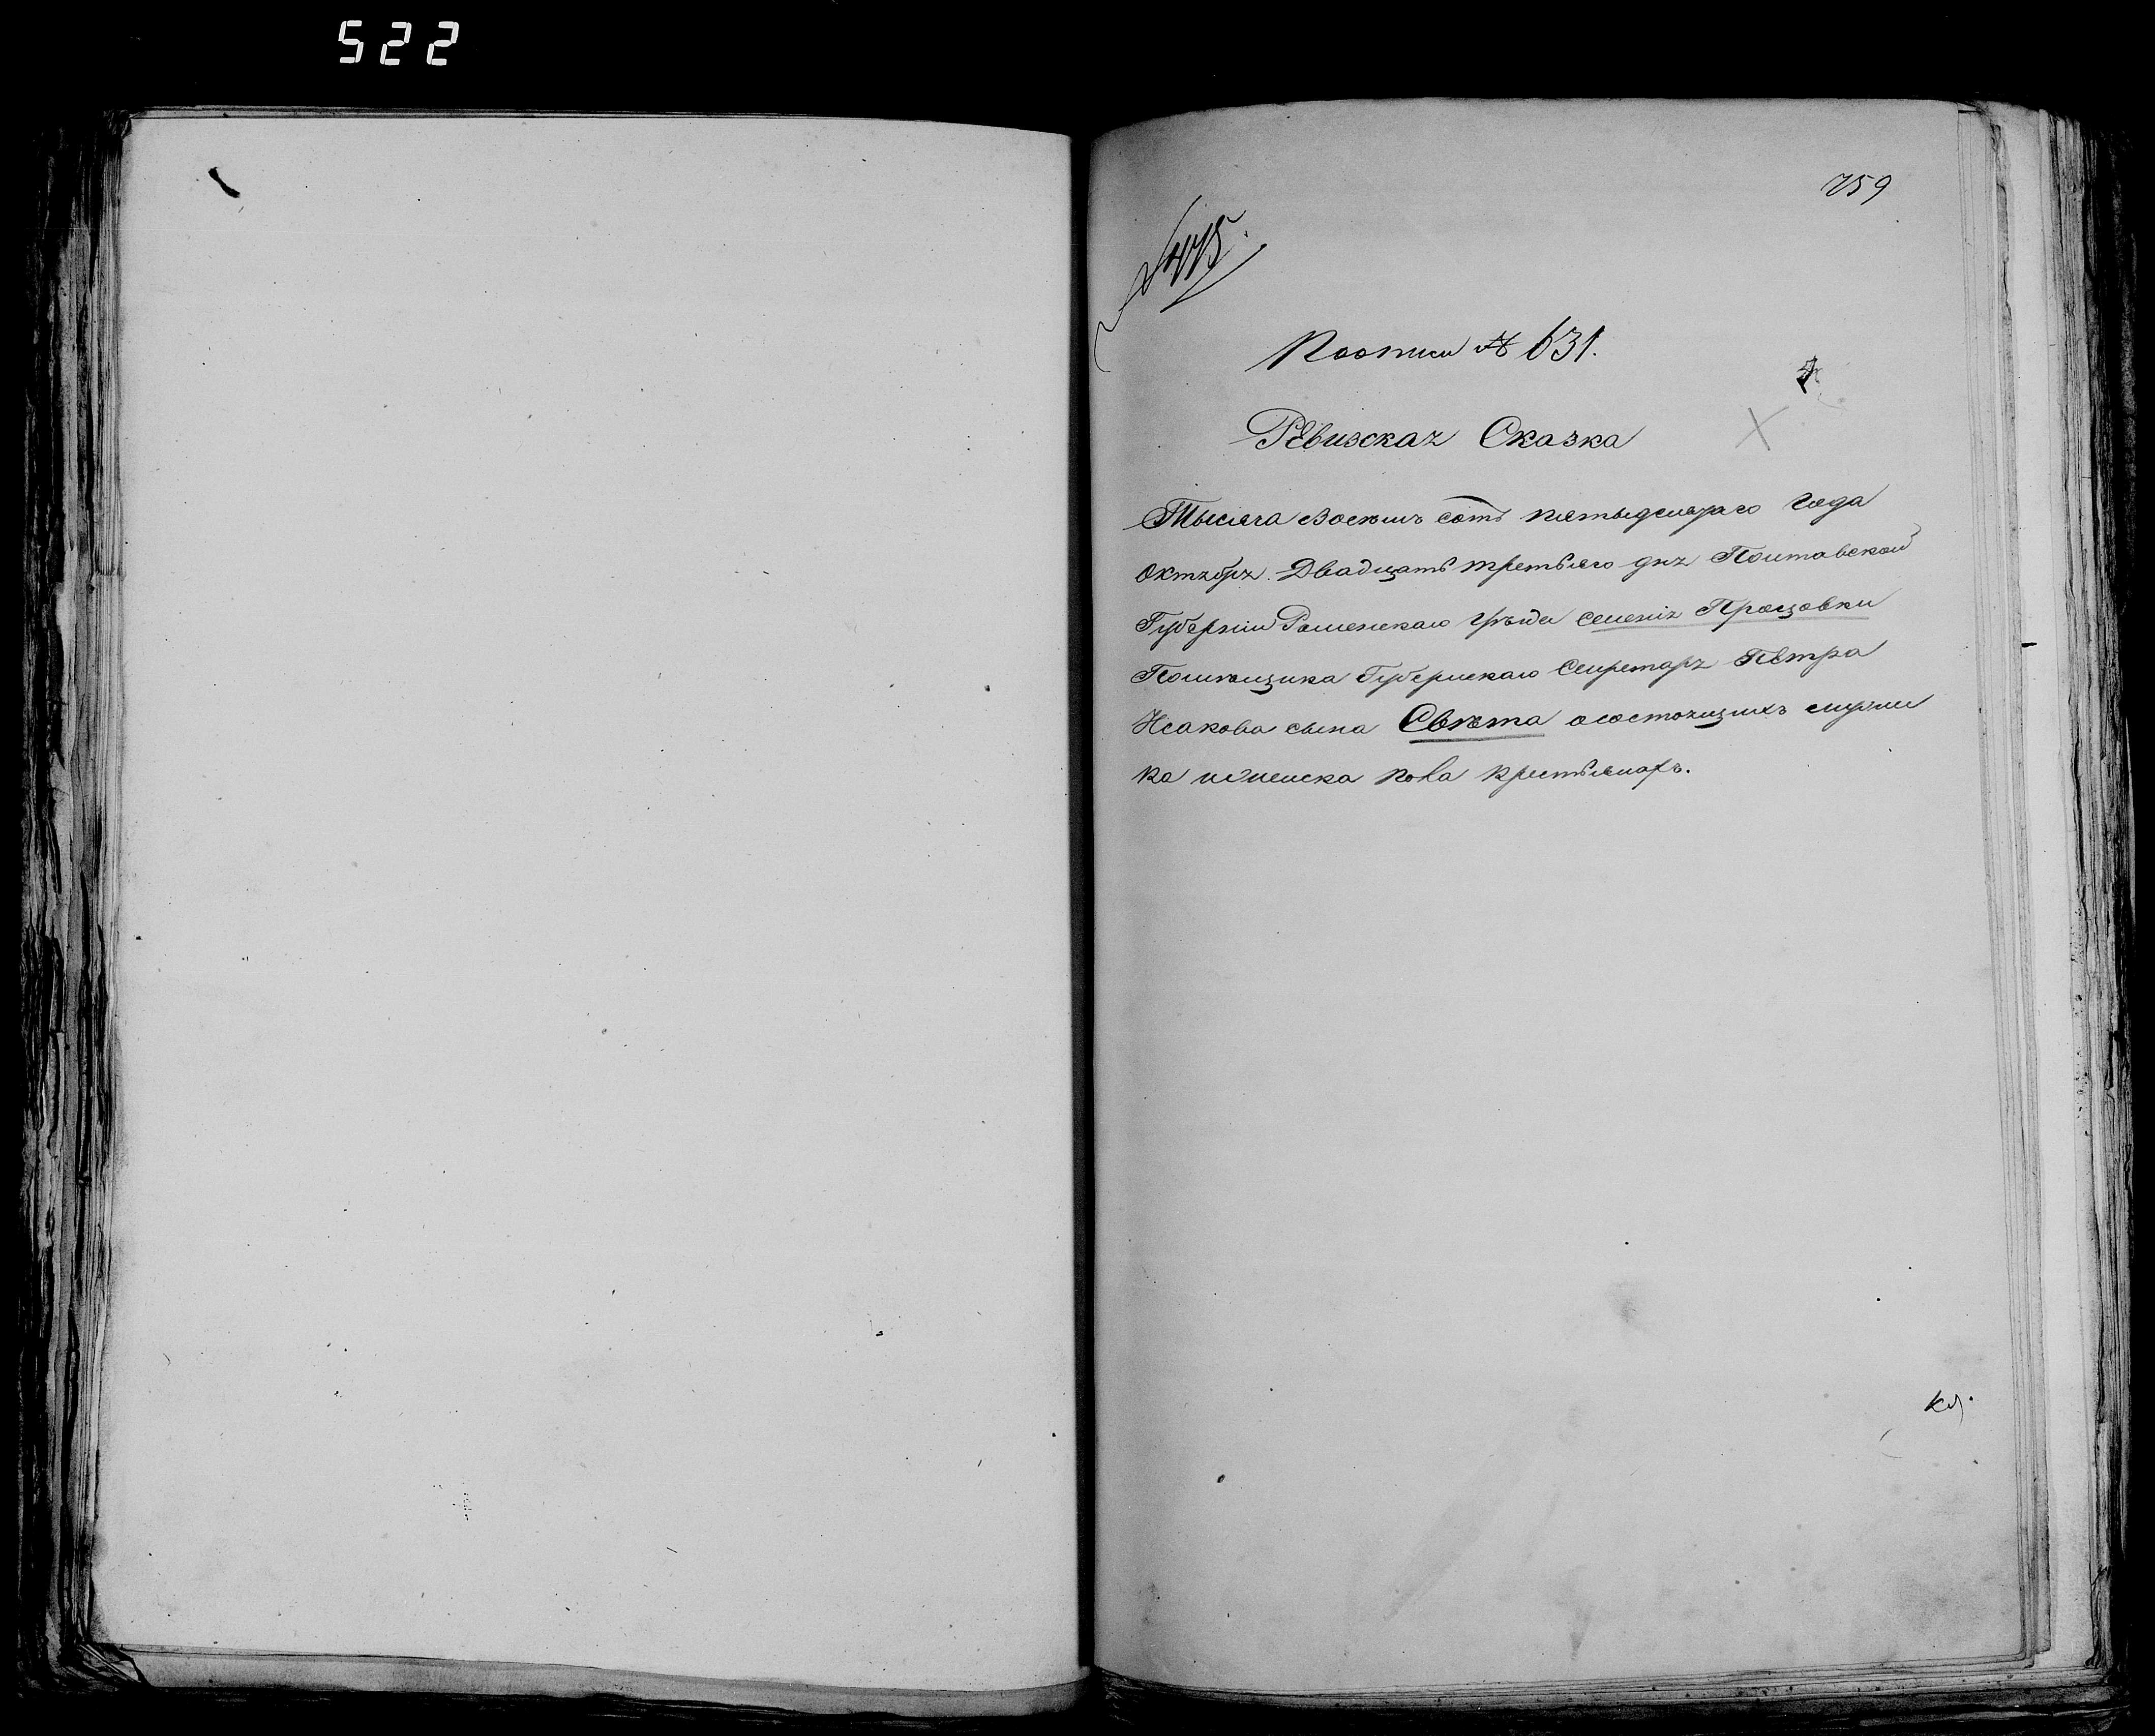 522
759
475
По описи № 631.
Ревизская Сказка
Тысяча восемь сотъ пятьдесятаго года
Октября Двадцать третьяго дня Полтавской
Губерніи Роменскаго Уѣзда селенія Процовки
Помѣщика Губернскаго Секретаря Петра
Исакова сына Свѣта о состоящихъ мужеска
ка и женска пола крестьянахъ.